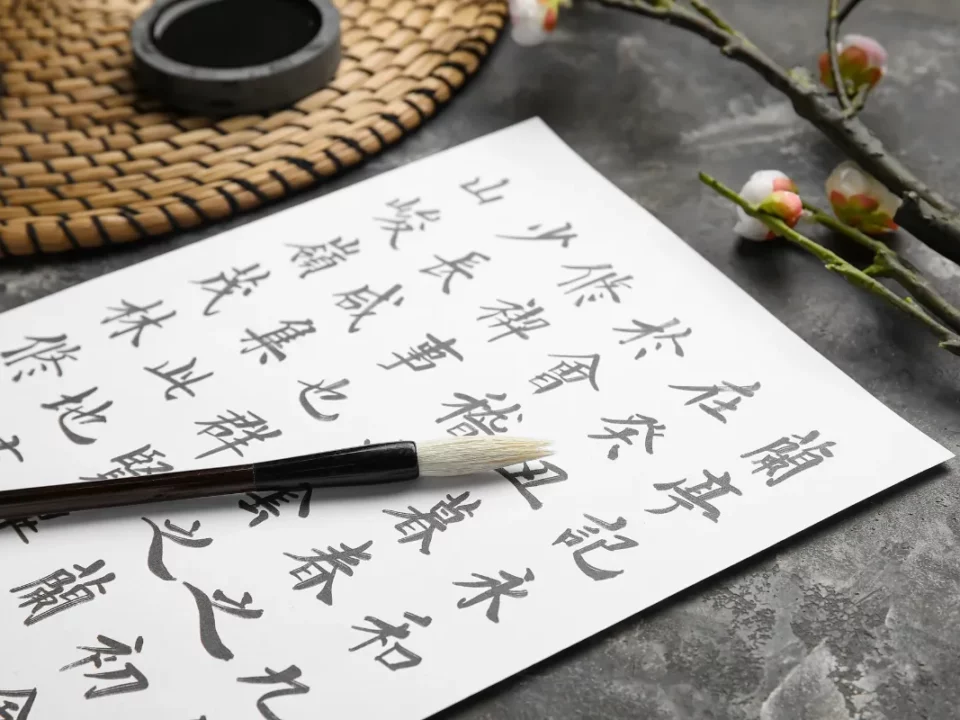 蘭亭記永和九
在癸丑暮春之初
於會稽之蘭
修禊事也群賢
少長咸集此地
山峻嶺茂林修